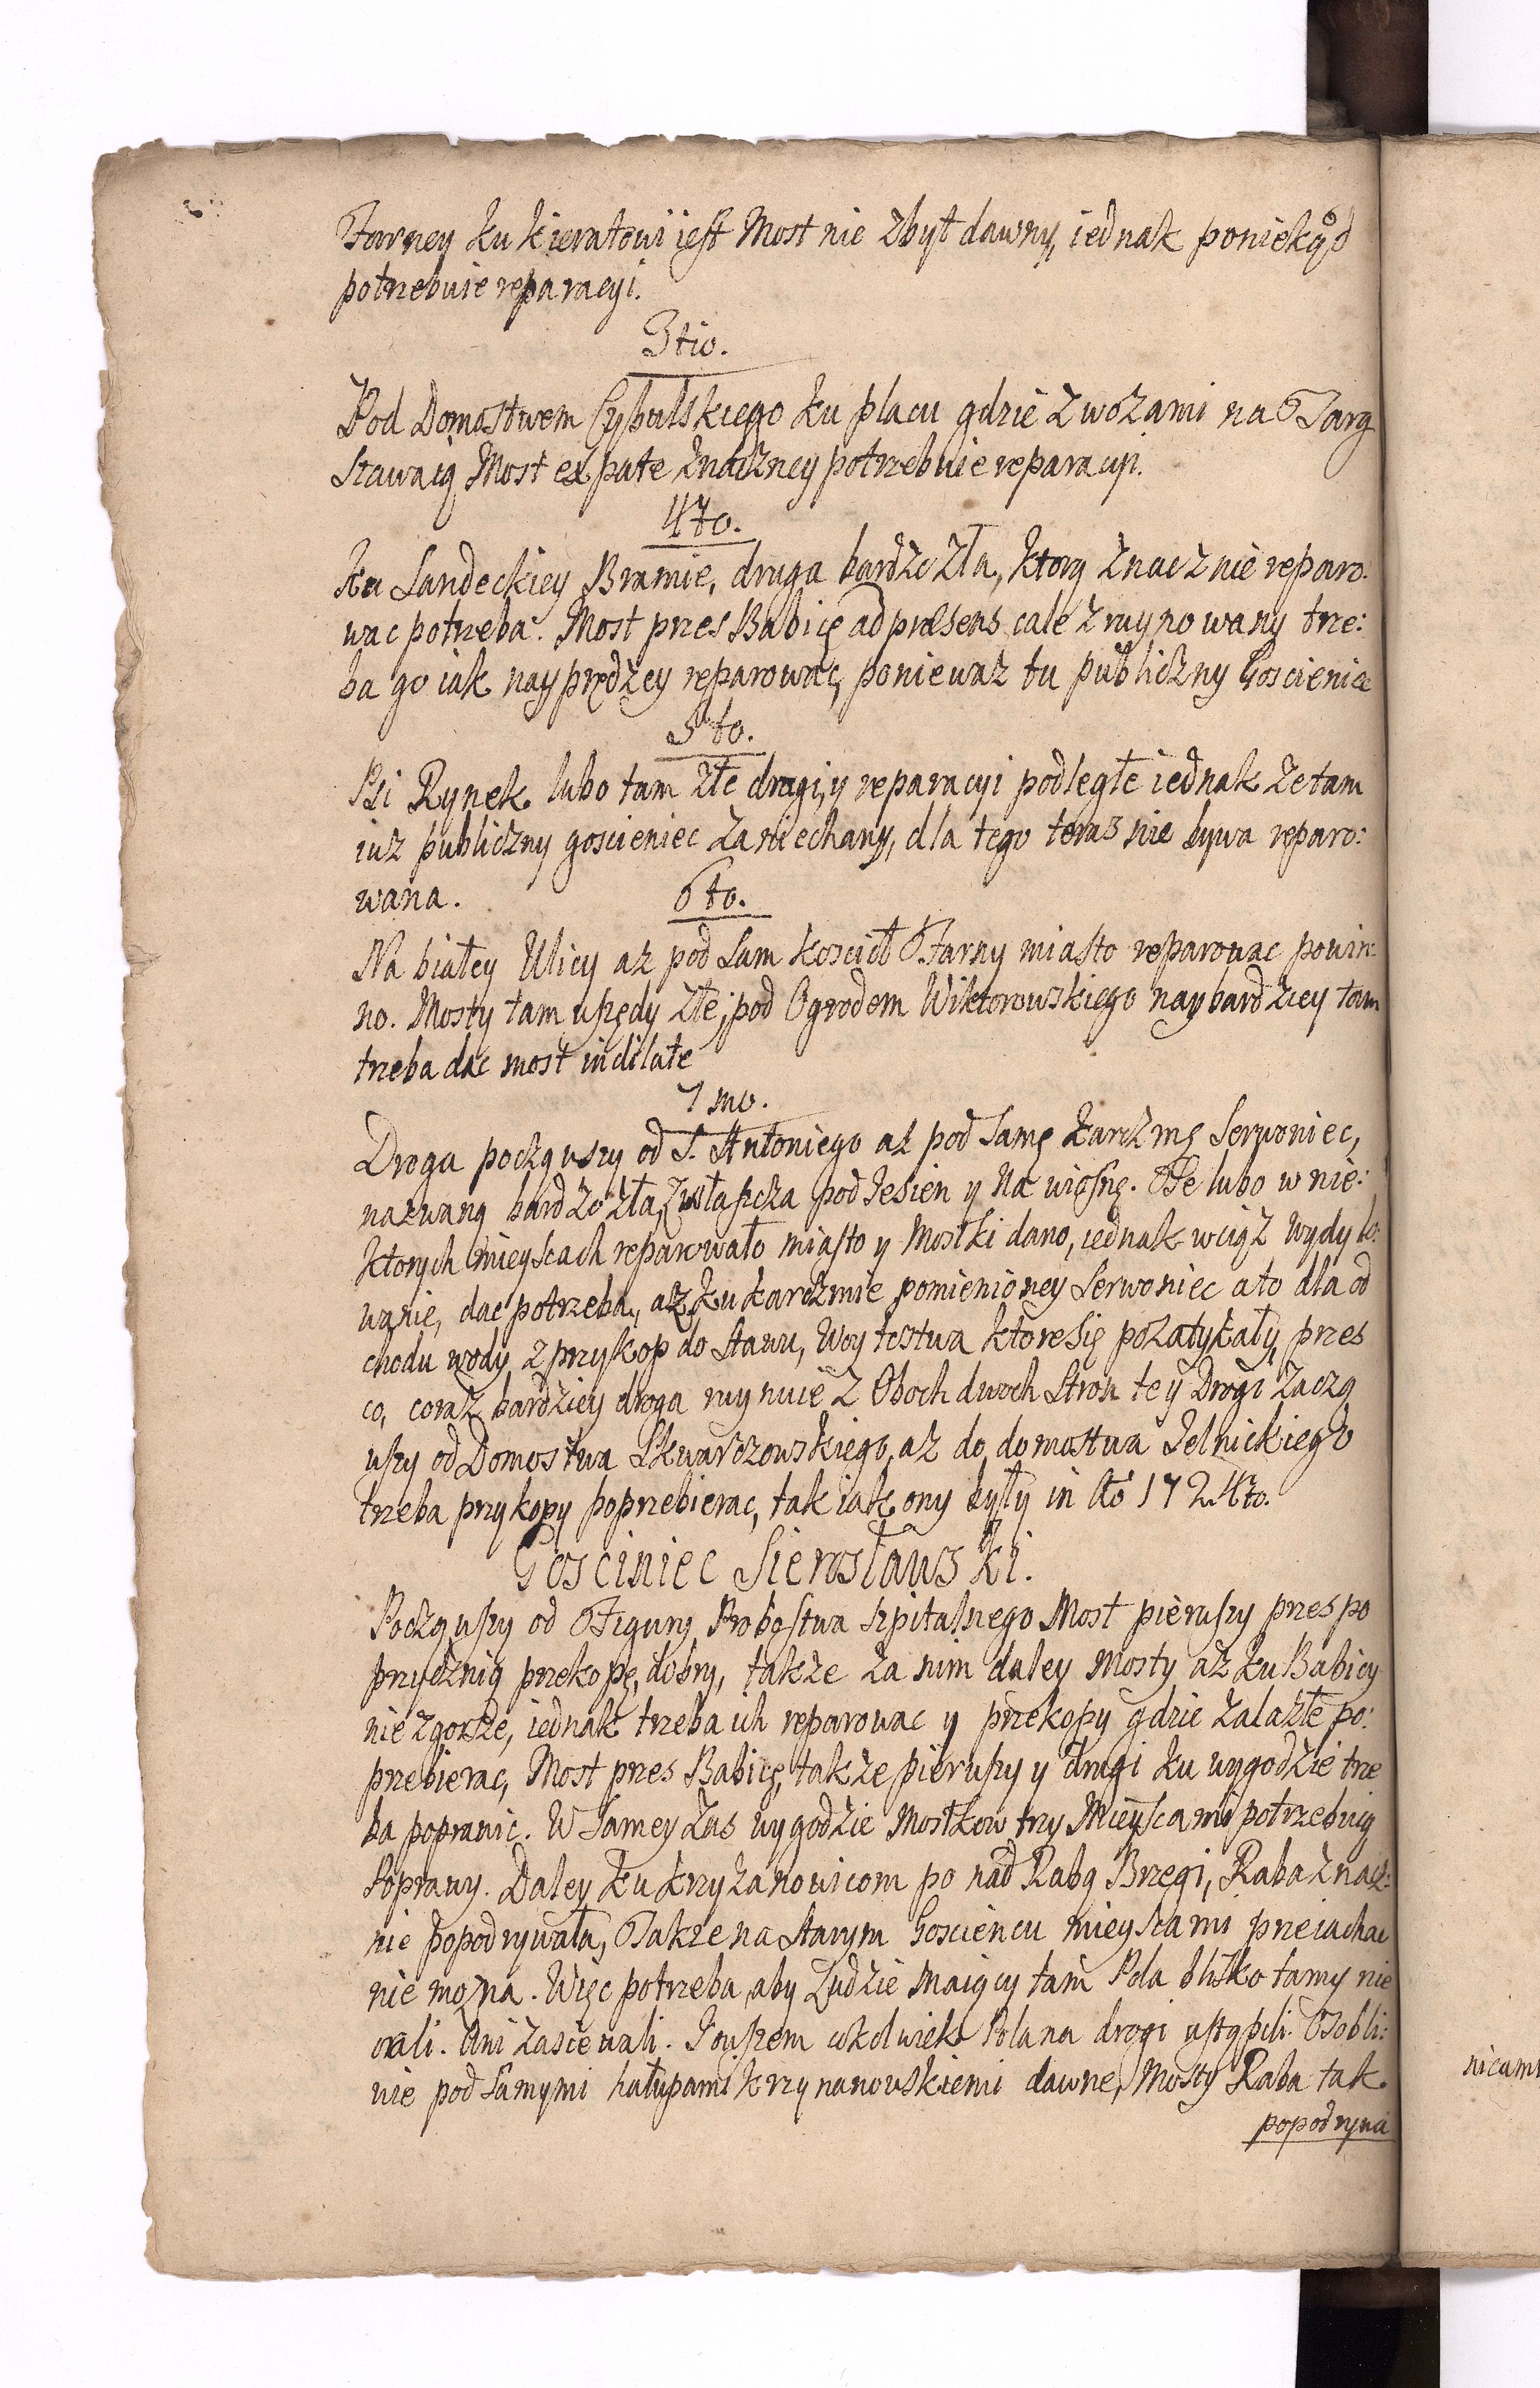 Farney ku kieratowi iest Most nie zbyt dawny, iednak poniekąd
potrzebuie reparacyi.
3tio.
Pod Domostwem Cybulskiego ku placu gdzie z wozami na Targ
stawaią Most ex parte znaczney potrzebuie reparacyi.
4to.
Ku Sandeckiey Bramie, droga bardzo zła, ktorą znacznie reparo.
wac potrzeba. Most przes Babicę ad præsens cale zruynowany trze:
ba go iak nayprędzey reparowac, poniewaz tu publiczny Goscieniec
5to.
Psi Rynek lubo tam złe drogi, y reparacyi podległe iednak ze tam
iuz publiczny goscieniec zaniechany, dla tego teras nie bywa reparo:
wana.
6to.
Na białey Ulicy az pod sam kosciół Farny miasto reparowac powin:
no. Mosty tam wszędy złe, pod Ogrodem Wiktorowskiego naybardziey tam
trzeba dac most indilate
7mo.
Droga począwszy od S. Antoniego az pod samę karczmę Serwoniec,
nazwaną bardzo zła, zwłaszcza pod Jesien y na wiosnę. Ze lubo w nie:
ktorych mieyscach reparowało miasto y Mostki dano, iednak wciąz wydylo:
wanie, dac potrzeba, az ku karczmie pomienioney Serwoniec a to dla od
chodu wody z przykop do Stawu, Woytostwa ktore się pozatykały, przes
co, coraz bardziey droga ruynuie z Oboch dwoch Stron tey Drogi zaczą
wszy od Domostwa Skwarczowskiego, az do domostwa Jelnickiego
trzeba przykopy poprzebierac, tak iak ony były in Ao 1724to.
Gosciniec Sierosławski.
Począwszy od Figury Probostwa szpitalnego Most pierwszy przes po
przycznią przekopę, dobry, takze za nim daley Mosty az ku Babicy
nie zgorsze, iednak trzeba ich reparowac y przekopy gdzie zalazłe po:
przebierac, Most przes Babicę, takze pierwszy y drugi ku wygodzie trze
ba poprawic. W samey zas wygodzie Mostkow trzy Mieyscami potrzebuią
Poprawy. Daley ku krzyzanowicom po nad Rabą Brzegi, Raba znacz:
nie popodrywała, Takze na starym Gosciencu mieyscami przeiachac
nie mozna. Więc potrzeba, aby Ludzie maiący tam Pola blisko tamy nie
orali. Ani zasiewali. Y owszem cokolwiek Pola na drogi ustąpili. Osobli:
wie pod samymi hałupami krzynanowskiemi dawne, Mosty Raba tak
popodrywa
nicami